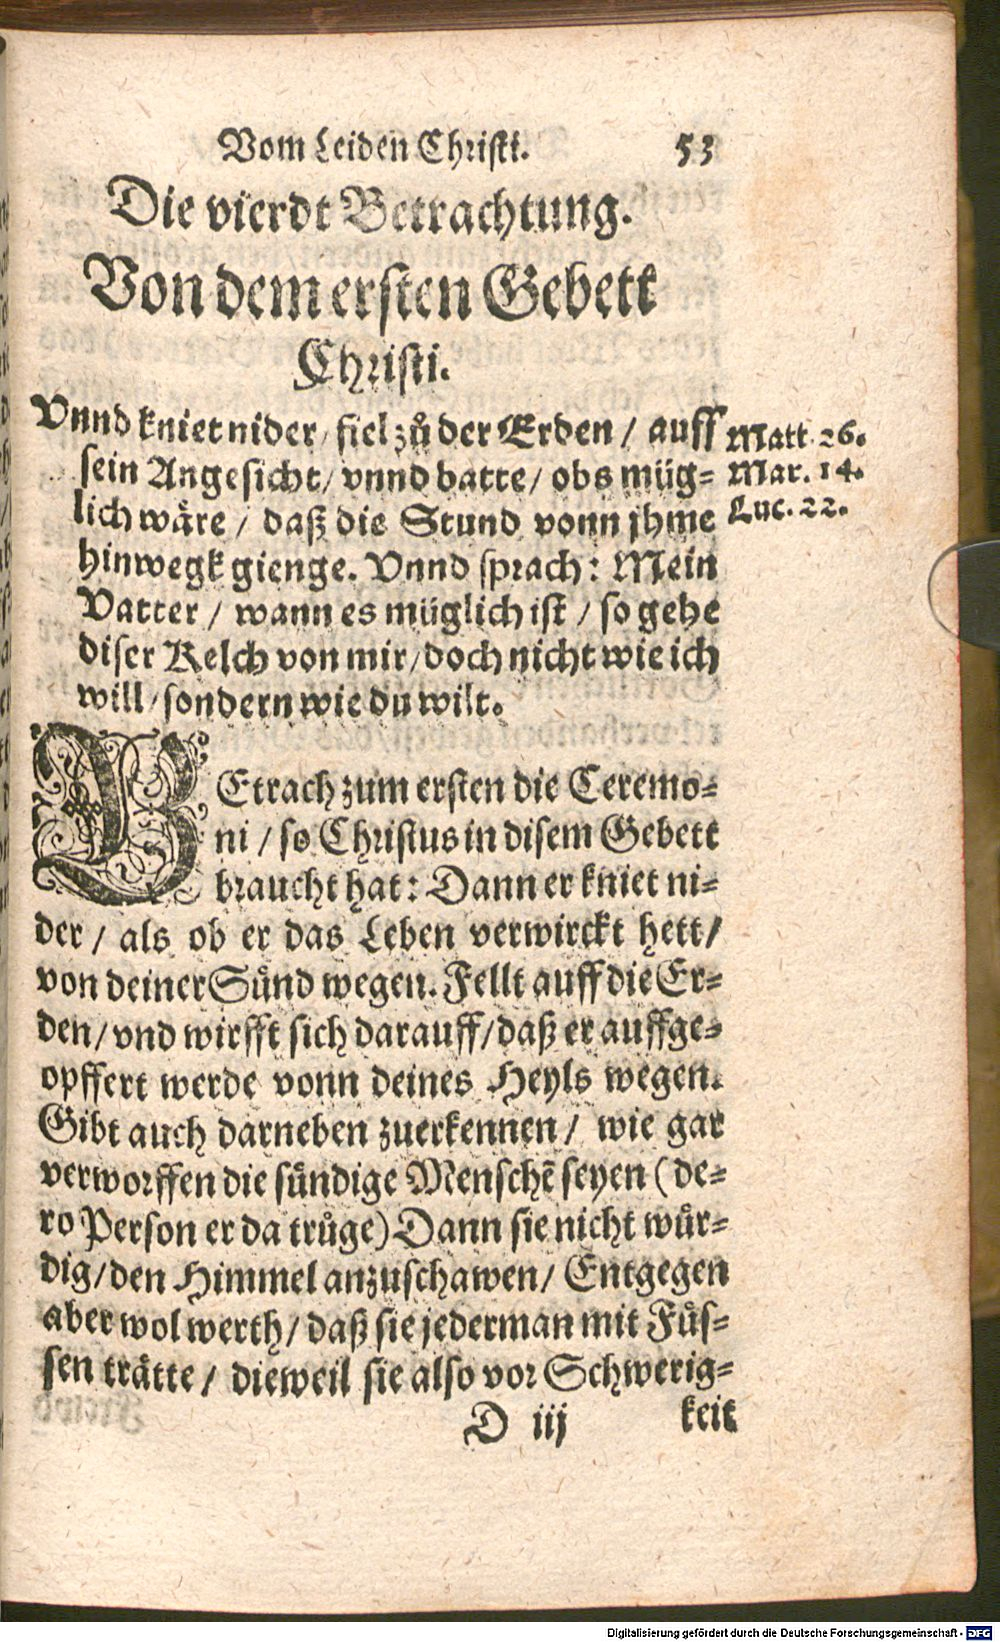 Vom Leiden Christi. 53
Die vierdt Betrachtung.
Von dem ersten Gebett
Christi.
Vnnd kniet nider / fiel zů der Erden / auff
sein Angesicht / vnnd batte / obs müg⸗
lich wäre / daß die Stund vonn jhme
hinwegk gienge. Vnnd sprach: Mein
Vatter / wann es müglich ist / so gehe
diser Kelch von mir / doch nicht wie ich
will / sondern wie du wilt.
Matt. 26.
Mar. 14.
Luc. 22.
BEtrach zum ersten die Ceremo⸗
ni / so Christus in disem Gebett
braucht hat: Dann er kniet ni⸗
der / als ob er das Leben verwirckt hett /
von deiner Sünd wegen. Fellt auff die Er⸗
den / vnd wirfft sich darauff / daß er auffge⸗
opffert werde vonn deines Heyls wegen.
Gibt auch darneben zuerkennen / wie gar
verworffen die sündige Menschē seyen (de⸗
ro Person er da trůge) Dann sie nicht wür⸗
dig / den Himmel anzuschawen / Entgegen
aber wol werth / daß sie jederman mit Füs⸗
sen trätte / dieweil sie also vor Schwerig⸗
D iij keit
Digitalisierung gefördert durch die Deutsche Forschungsgemeinschaft - DFG